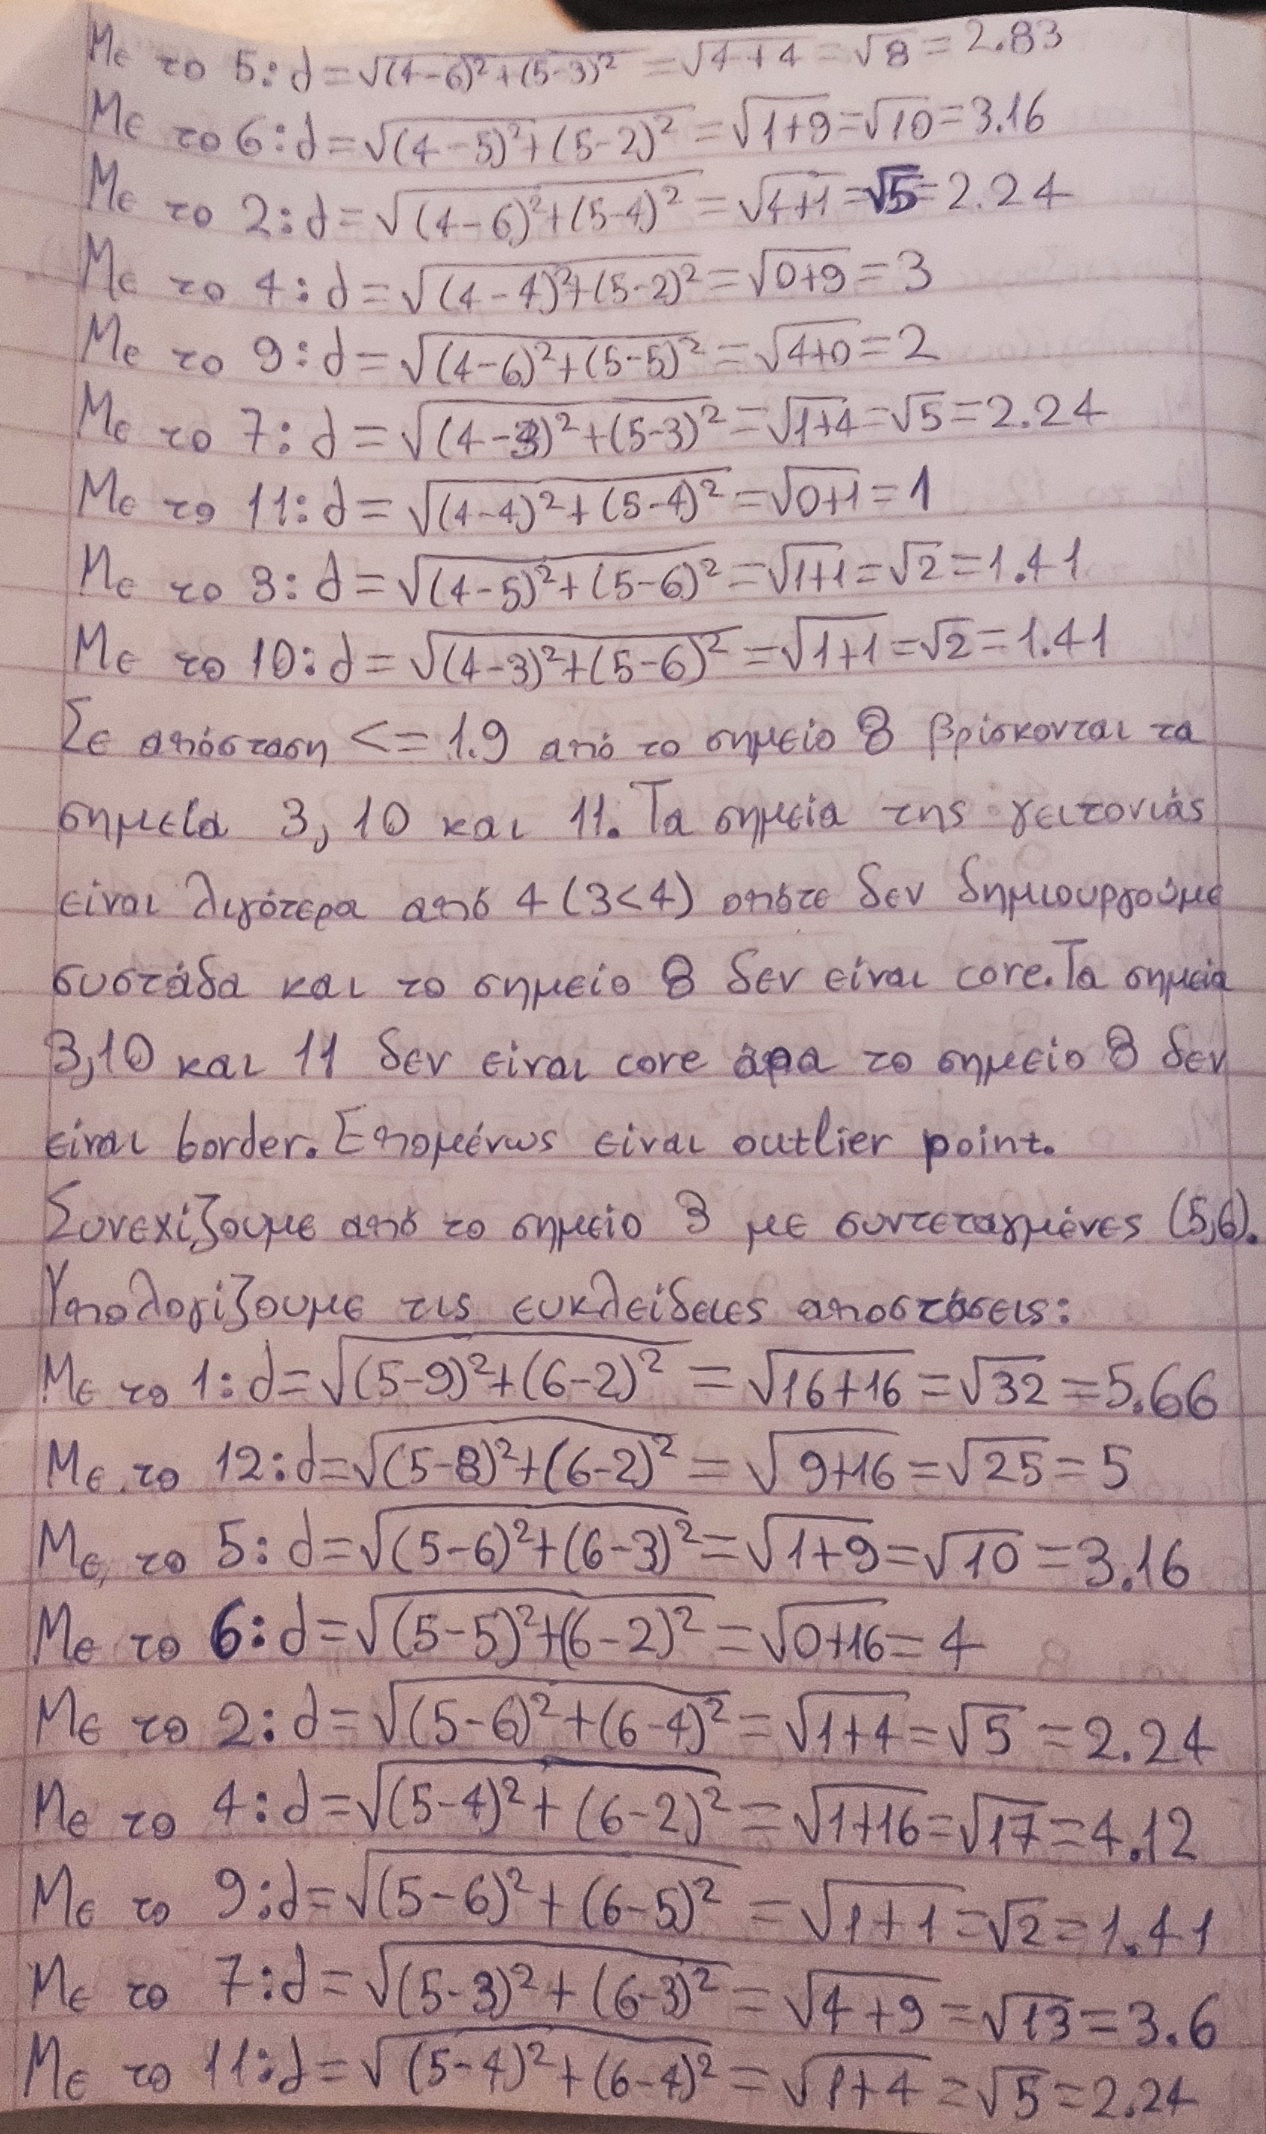 Με το 5: d=√(4-6)²+(5-3)² = √4+4 = √8 = 2.83
Με το 6: d=√(4-5)²+(5-2)² = √1+9 = √10 = 3.16
Με το 2: d=√(4-6)²+(5-4)² = √4+1 = √5 = 2.24
Με το 4: d=√(4-4)²+(5-2)² = √0+9 = 3
Με το 9: d=√(4-6)²+(5-5)² = √4+0 = 2
Με το 7: d=√(4-3)²+(5-3)² = √1+4 = √5 = 2.24
Με το 11: d=√(4-4)²+(5-4)² = √0+1 = 1
Με το 3: d=√(4-5)²+(5-6)² = √1+1 = √2 = 1.41
Με το 10: d=√(4-3)²+(5-6)² = √1+1 = √2 = 1.41
Σε απόσταση <= 1.9 από το σημείο 8 βρίσκονται τα
σημεία 3, 10 και 11. Τα σημεία της γειτονιάς
είναι λιγότερα από 4 (3<4) οπότε δεν δημιουργούμε
συστάδα και το σημείο 8 δεν είναι core. Τα σημεία
3, 10 και 11 δεν είναι core άρα το σημείο 8 δεν
είναι border. Επομένως είναι outlier point.
Συνεχίζουμε από το σημείο 3 με συντεταγμένες (5,6).
Υπολογίζουμε τις ευκλείδειες αποστάσεις:
Με το 1: d=√(5-9)²+(6-2)² = √16+16 = √32 = 5.66
Με το 12: d=√(5-8)²+(6-2)² = √9+16 = √25 = 5
Με το 5: d=√(5-6)²+(6-3)² = √1+9 = √10 = 3.16
Με το 6: d=√(5-5)²+(6-2)² = √0+16 = 4
Με το 2: d=√(5-6)²+(6-4)² = √1+4 = √5 = 2.24
Με το 4: d=√(5-4)²+(6-2)² = √1+16 = √17 = 4.12
Με το 9: d=√(5-6)²+(6-5)² = √1+1 = √2 = 1.41
Με το 7: d=√(5-3)²+(6-3)² = √4+9 = √13 = 3.6
Με το 11: d=√(5-4)²+(6-4)² = √1+4 = √5 = 2.24